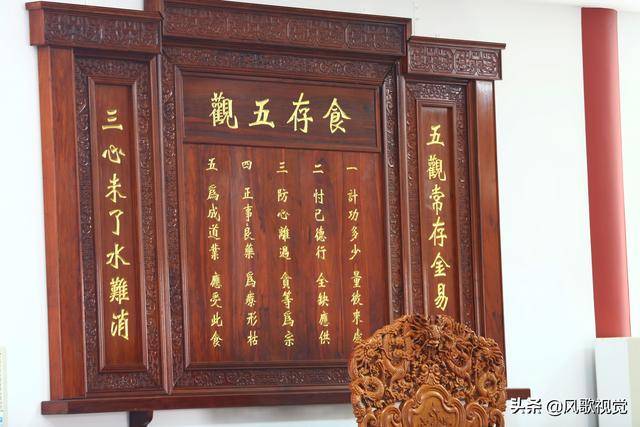 食存五觀
五觀常存金易
一 計功多少 量彼來處
二 忖己德行 全缺應供
三 防心離過 貪等爲宗
四 正事良藥 爲療形枯
五 爲成道業 應受此食
三心未了水難消
头条 @风歌视觉